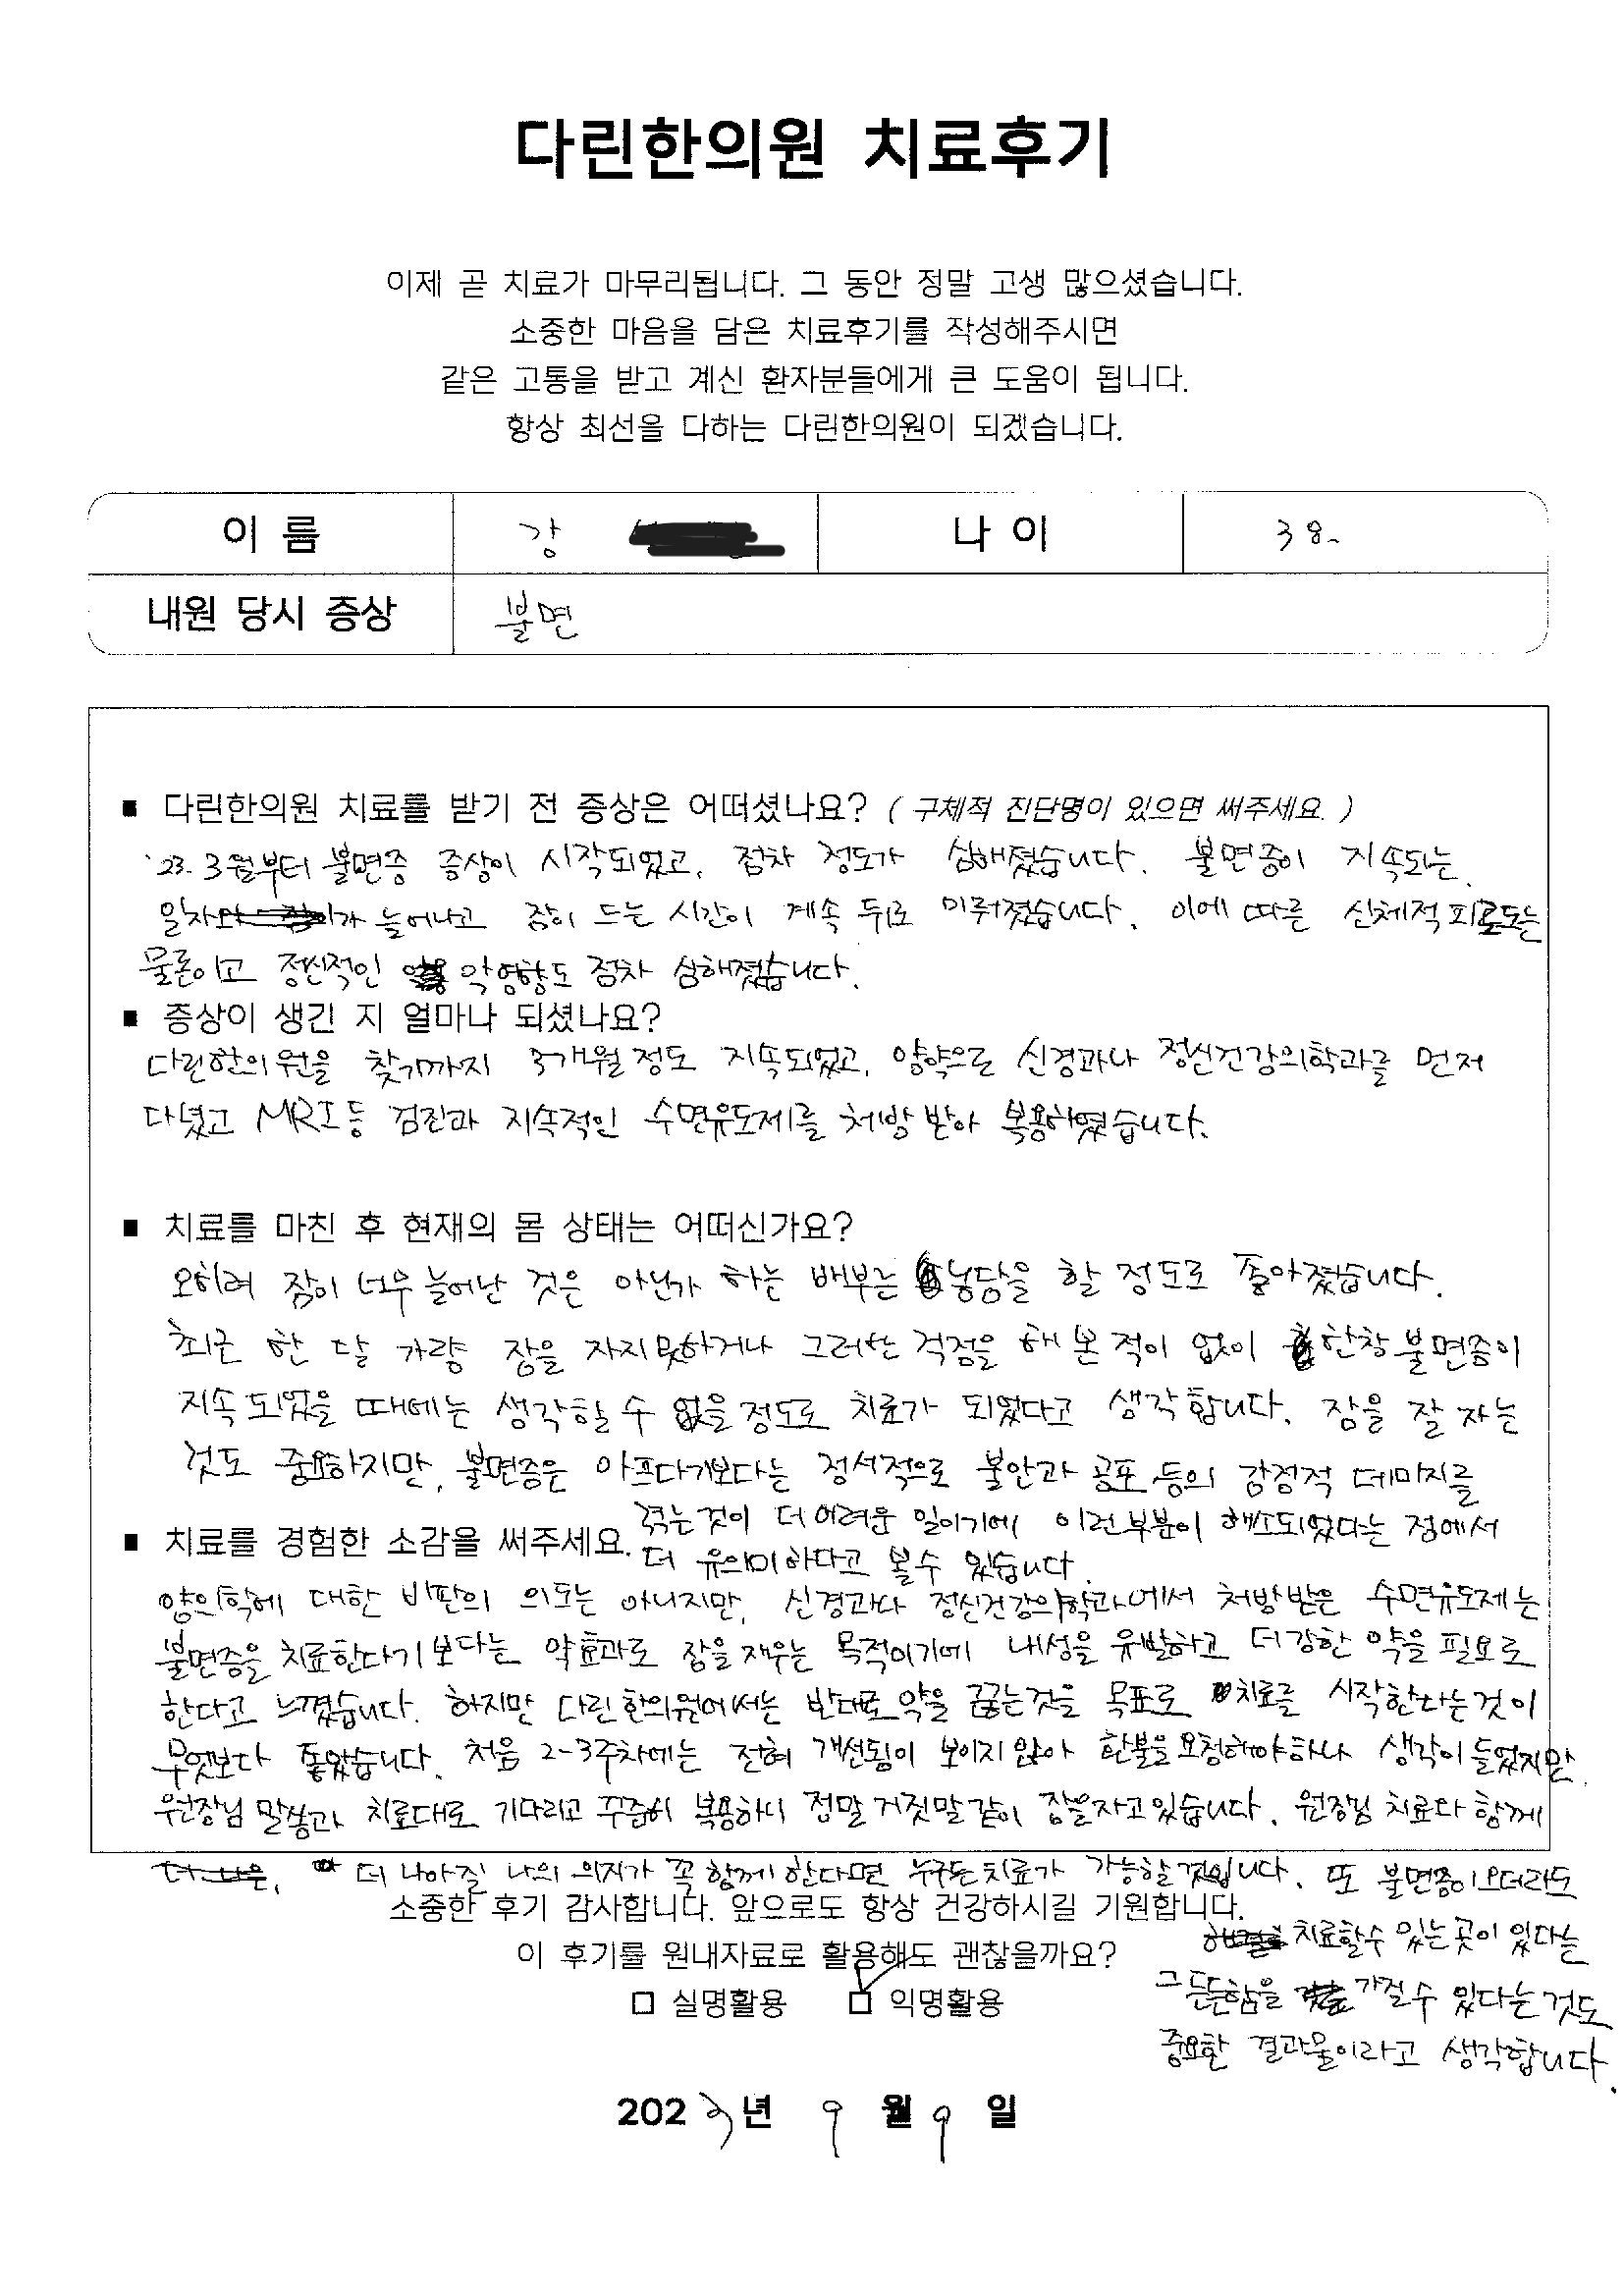 다린한의원 치료후기
이제 곧 치료가 마무리됩니다. 그 동안 정말 고생 많으셨습니다.
소중한 마음을 담은 치료후기를 작성해주시면
같은 고통을 받고 계신 환자분들에게 큰 도움이 됩니다.
항상 최선을 다하는 다린한의원이 되겠습니다.
이 름 강 나 이 38.
내원 당시 증상 불면
■ 다린한의원 치료를 받기 전 증상은 어떠셨나요? ( 구체적 진단명이 있으면 써주세요. )
'23. 3월부터 불면증 증상이 시작되었고, 점차 정도가 심해졌습니다. 불면증이 지속되는
일자가 늘어나고 잠이 드는 시간이 계속 뒤로 미뤄졌습니다. 이에 따른 신체적 피로도는
물론이고 정신적인 악영향도 점차 심해졌습니다.
■ 증상이 생긴 지 얼마나 되셨나요?
다린한의원을 찾기까지 3개월 정도 지속되었고, 양약으로 신경과나 정신건강의학과를 먼저
다녔고 MRI 등 검진과 지속적인 수면유도제를 처방 받아 복용하였습니다.
■ 치료를 마친 후 현재의 몸 상태는 어떠신가요?
오히려 잠이 너무 늘어난 것은 아닌가 하는 배부른 농담을 할 정도로 좋아졌습니다.
최근 한 달 가량 잠을 자지 못하거나 그러한 걱정을 해 본 적이 없이 한창 불면증이
지속 되었을 때에는 생각할 수 없을 정도로 치료가 되었다고 생각합니다. 잠을 잘 자는
것도 중요하지만, 불면증은 아프다기보다는 정서적으로 불안과 공포 등의 감정적 데미지를
겪는 것이 더 어려운 일이기에 이런 부분이 해소되었다는 점에서
■ 치료를 경험한 소감을 써주세요.
더 유의미하다고 볼 수 있습니다.
양의학에 대한 비판의 의도는 아니지만, 신경과나 정신건강의학과에서 처방받은 수면유도제는
불면증을 치료한다기 보다는 약효과로 잠을 재우는 목적이기에 내성을 유발하고 더 강한 약을 필요로
한다고 느꼈습니다. 하지만 다린한의원에서는 반대로 약을 끊는 것을 목표로 치료를 시작한다는 것이
무엇보다 좋았습니다. 처음 2-3주차에는 전혀 개선됨이 보이지 않아 환불을 요청해야하나 생각이 들었지만,
원장님 말씀과 치료대로 기다리고 꾸준히 복용하니 정말 거짓말 같이 잠을 자고 있습니다. 원장님 치료와 함께
더 나아질 나의 의지가 꼭 함께 한다면 누구든 치료가 가능할 것입니다. 또 불면증이 오더라도
소중한 후기 감사합니다. 앞으로도 항상 건강하시길 기원합니다.
치료할 수 있는 곳이 있다는
이 후기를 원내자료로 활용해도 괜찮을까요?
그 든든함을 가질 수 있다는 것도
□ 실명활용 □ 익명활용
중요한 결과물이라고 생각합니다.
2023년 9월 9일